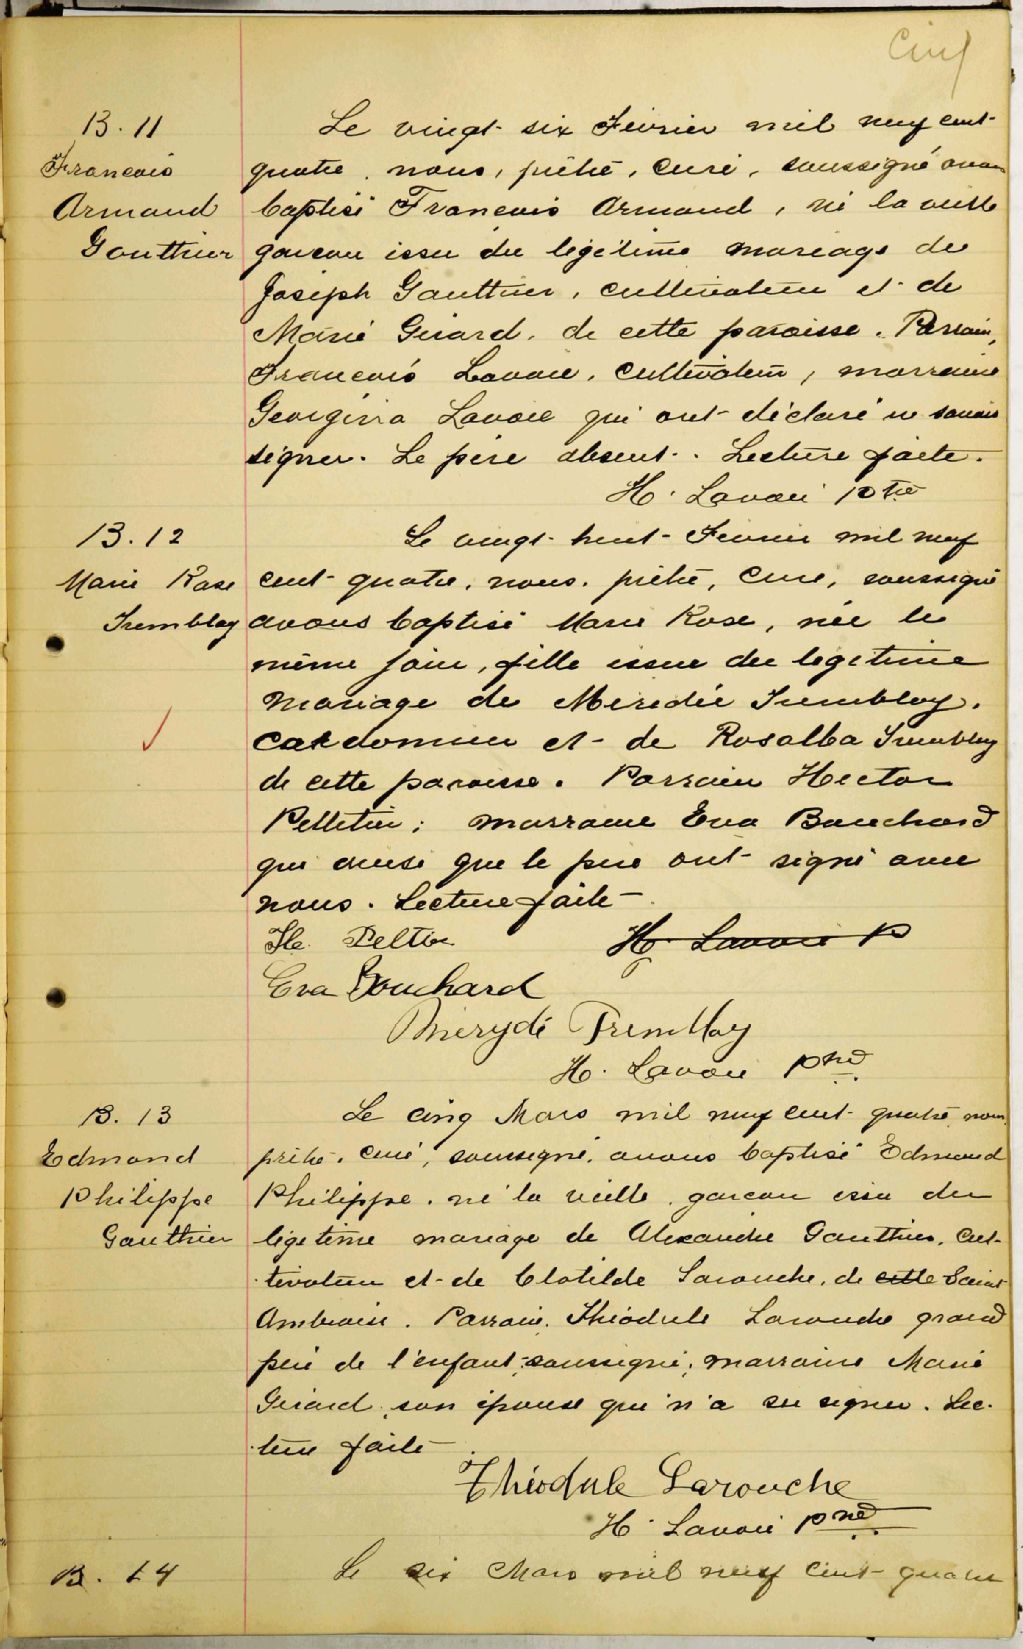 Cinq
B. 11
François
Armand
Gauthier
Le vingt six Février mil neuf cent
quatre, nous, prêtre, curé, soussigné avons
baptisé François Armand, né la veille
garçon issu du légitime mariage de
Joseph Gauthier, cultivateur et de
Marie Girard, de cette paroisse. Parrain,
François Lavoie, cultivateur, marraine
Georgina Lavoie qui ont déclaré ne savoir
signer. Le père absent. Lecture faite.
H. Lavoie ptre
B. 12
Marie Rose
Tremblay
Le vingt-huit Février mil neuf
cent quatre, nous, prêtre, curé, soussigné
avons baptisé Marie Rose, née le
même jour, fille issue du legitime
mariage de Meredée Tremblay,
cordonnier et de Rosalba Tremblay
de cette paroisse. Parrain Hector
Pelletier; marraine Eva Bouchard
qui ainsi que le père ont signé avec
nous. Lecture faite
He. Peltier
H. Lavoie P
Eva Bouchard
Mérydé Tremblay
H. Lavoie ptre
B. 13
Edmond
Philippe
Gauthier
Le cinq Mars mil neuf cent quatre nous
prêtre, curé, soussigné, avons baptisé Edmond
Philippe, né la veille, garçon issu du
légitime mariage de Alexandre Gauthier, cul-
tivateur et de Clotilde Larouche, de cette Saint
Ambroise. Parrain, Théodule Larouche grand
père de l'enfant, soussigné; marraine Marie
Girard, son épouse qui n'a su signer. Lec-
ture faite
Théodule Larouche
H. Lavoie ptre
B. 14
Le six Mars mil neuf cent quatre